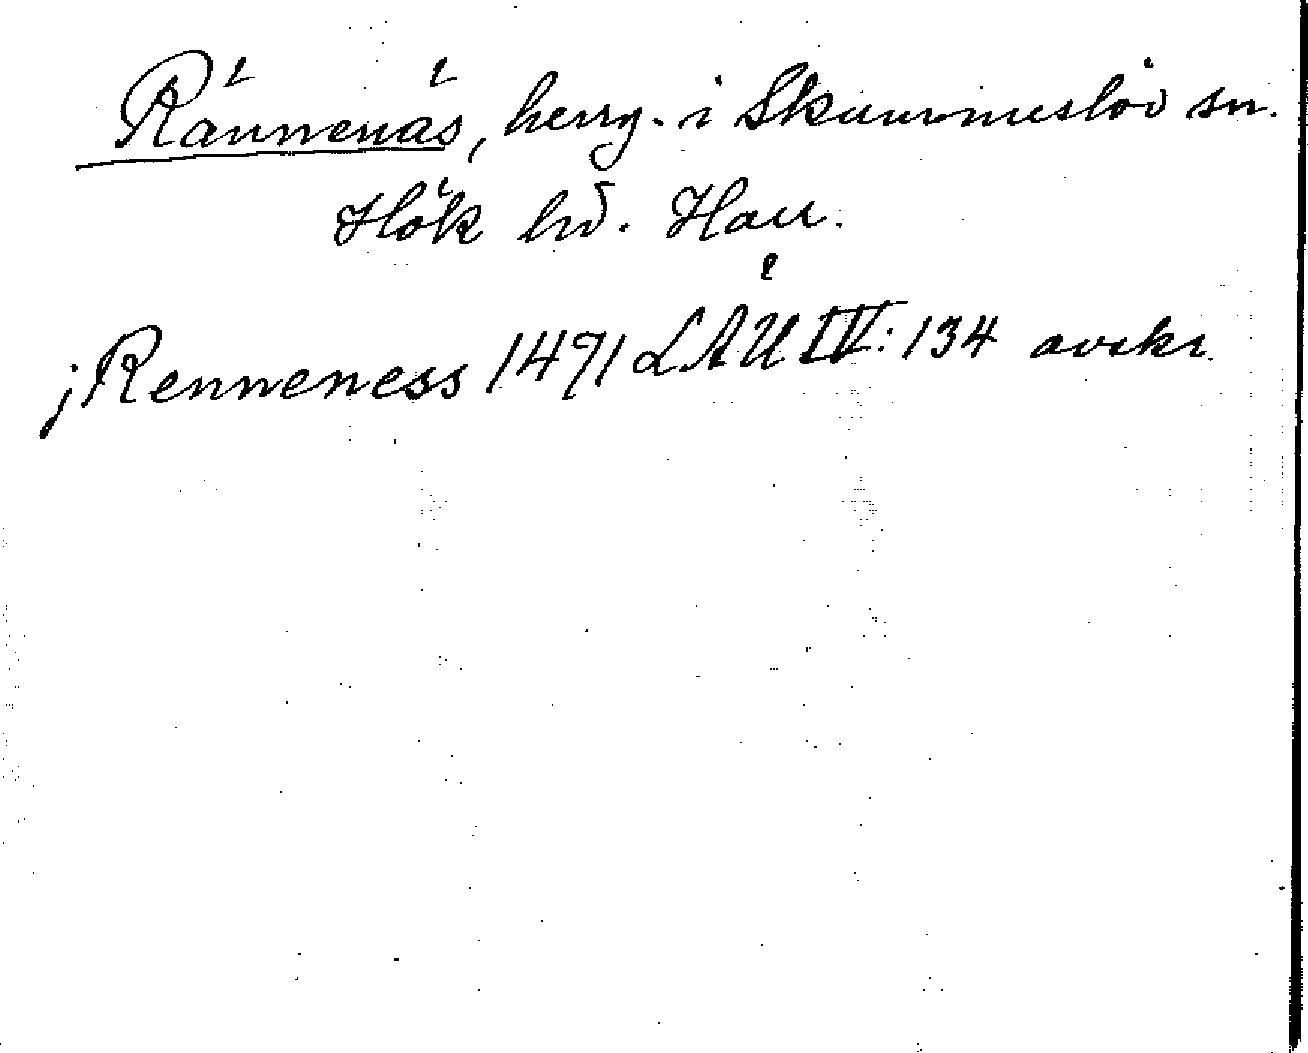 Rännenäs, herrg. i Skummeslöv sn.
Hök hd. Hall.
j Renneness 1491 LÄU IV: 134 avskr.